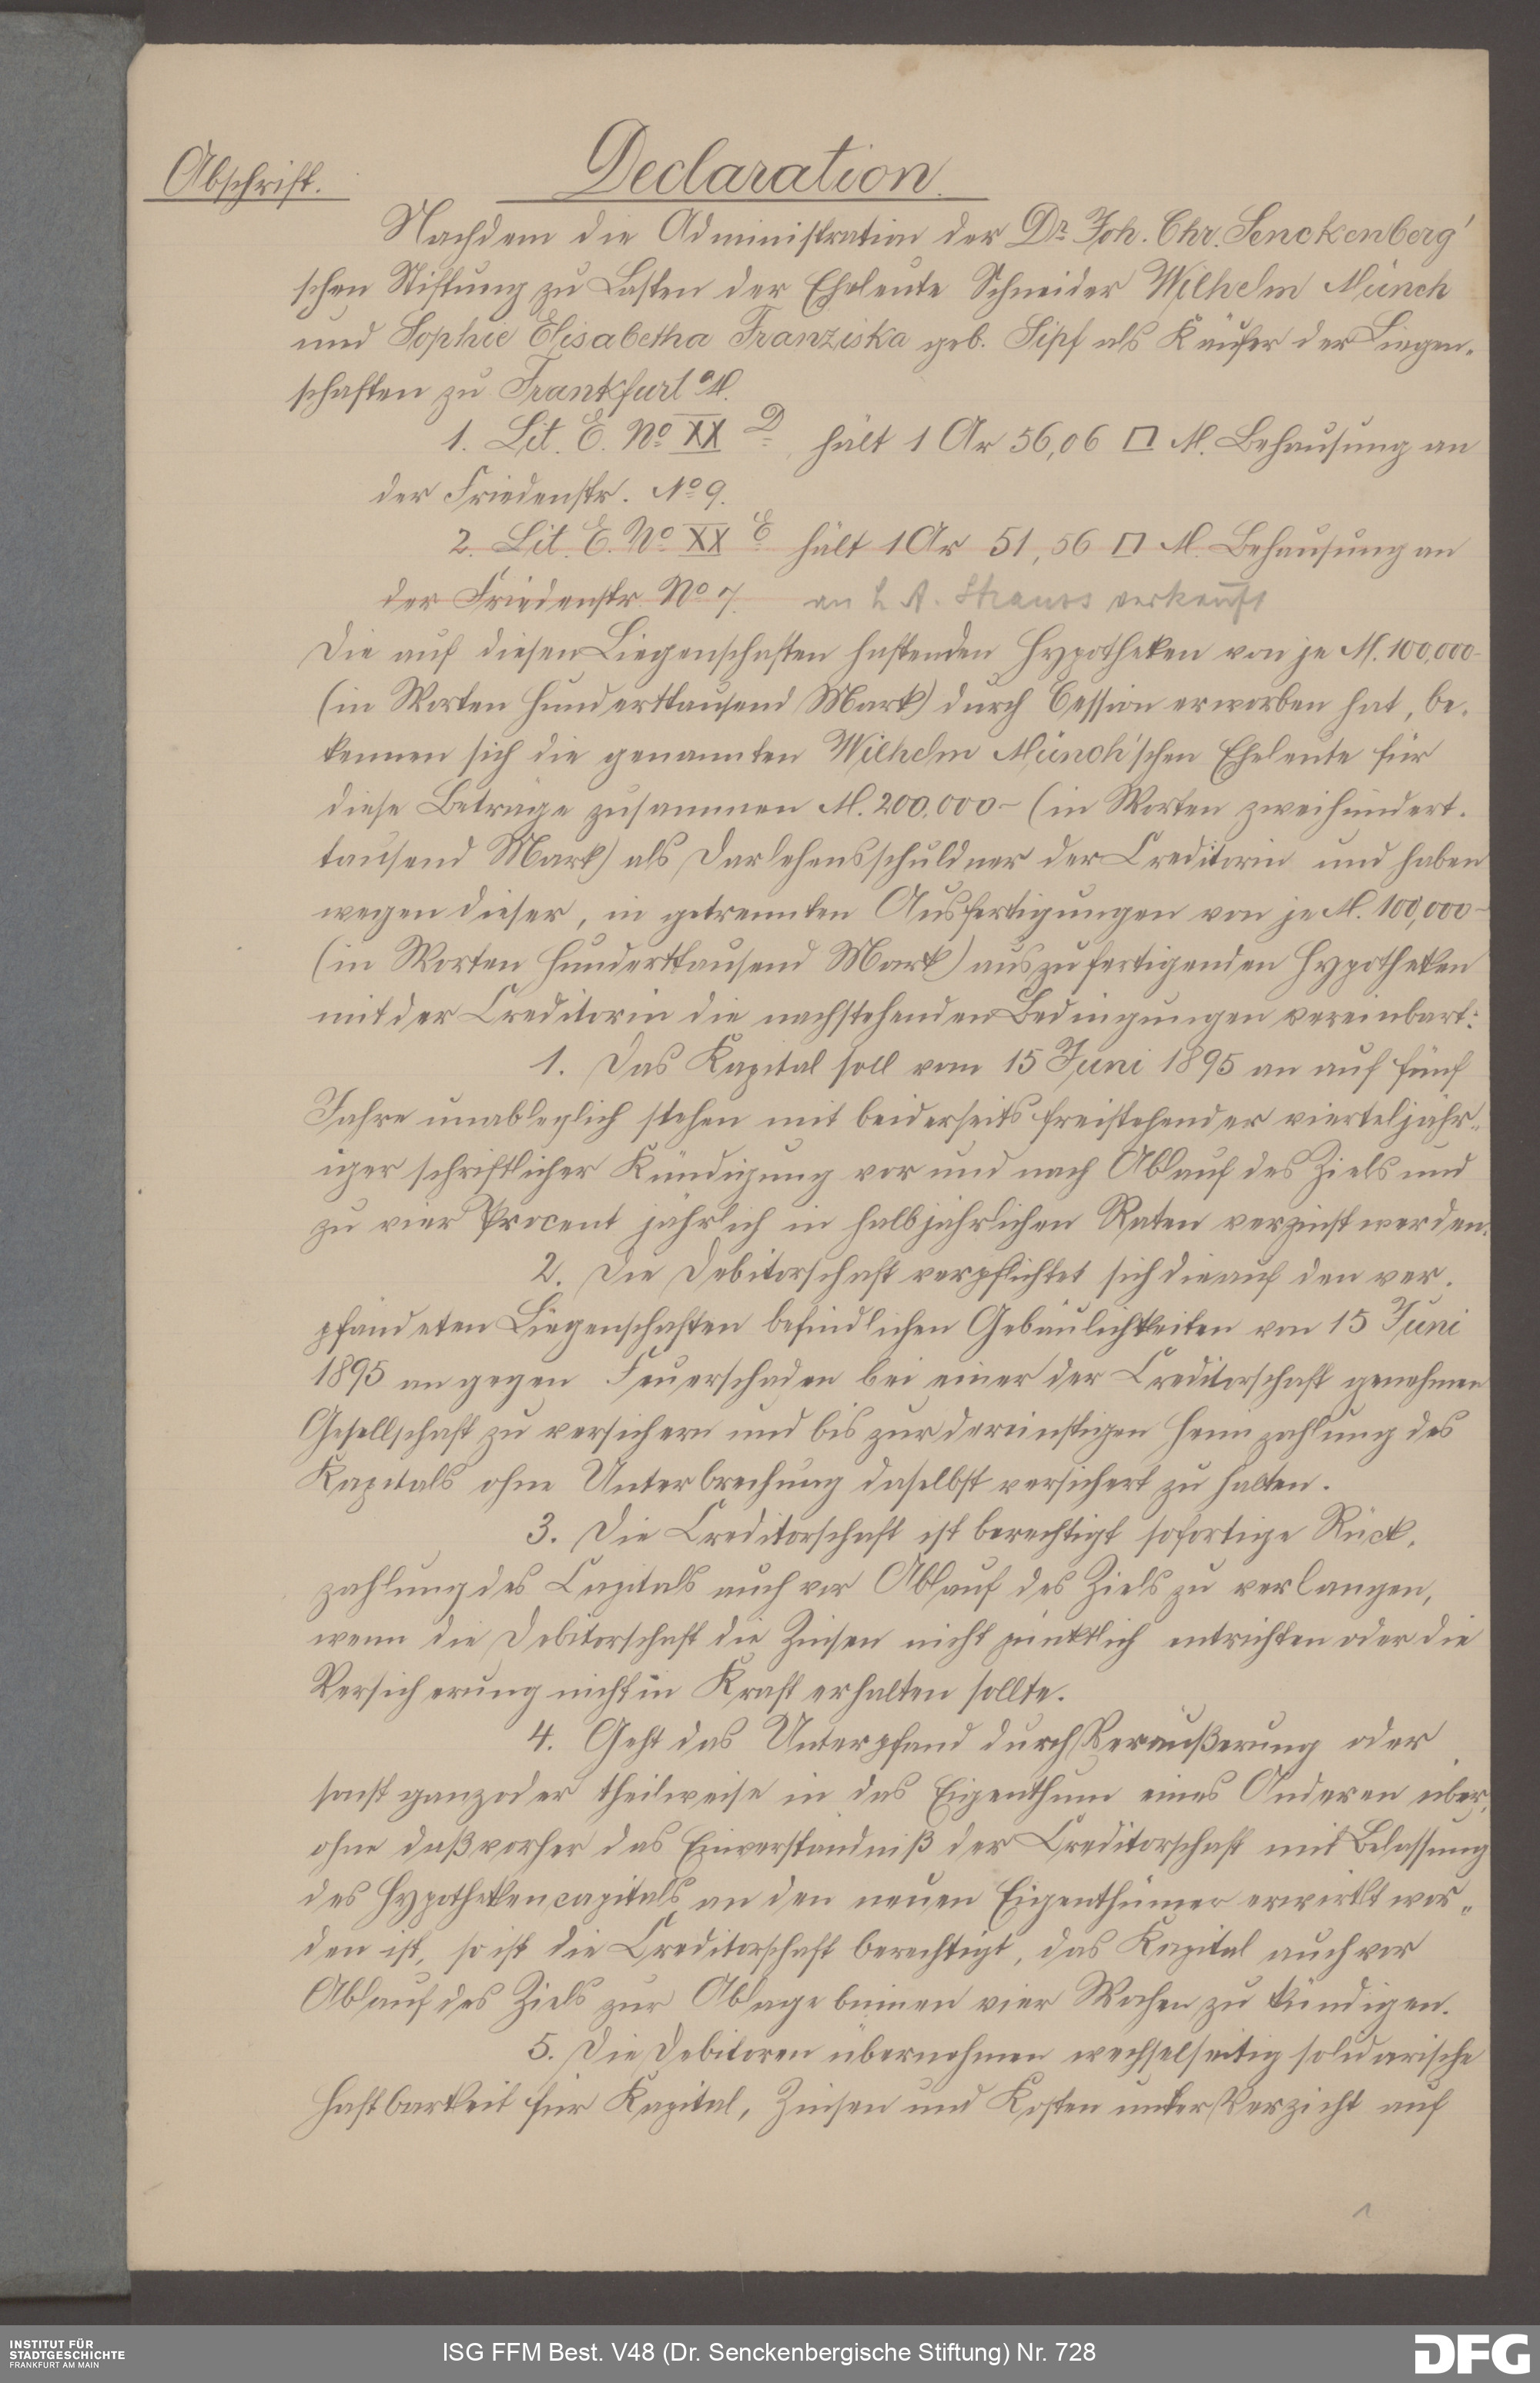 Abschrift.
Declaration.
Nachdem die Administration der Dr. Joh. Chr. Senckenberg'
schen Stiftung zu Lasten der Eheleute Schneider Wilhelm Münch
und Sophie Elisabetha Franziska geb. Sipf als Käufer der Liegen-
schaften zu Frankfurt a/M.
1. Lit. E. No XX D. hält 1 Ar 56,06 □ M. Behausung an
der Friedenstr. No 9.
2. Lit. E. No XX E hält 1 Ar 51,56 □ M. Behausung an
der Friedenstr. No 7. an L. A. Strauss verkauft
Die auf diesen Liegenschaften haftenden Hypotheken von je M. 100,000-
(in Worten Hunderttausend Mark) durch Cession erworben hat, be-
kennen sich die genannten Wilhelm Münch'schen Eheleute für
diese Beträge zusammen M. 200,000- (in Worten zweihundert-
tausend Mark) als Darlehensschuldner der Creditorin und haben
wegen dieser, in getrennten Ausfertigungen von je M. 100,000-
(in Worten Hunderttausend Mark) auszufertigenden Hypotheken
mit der Creditorin die nachstehenden Bedingungen vereinbart:
1. Das Kapital soll vom 15 Juni 1895 an auf fünf
Jahre unableglich stehen mit beiderseits freistehender vierteljähr-
iger schriftlicher Kündigung vor und nach Ablauf des Ziels und
zu vier Procent jährlich in halbjährlichen Raten verzinst werden.
2. Die Debitorschaft verpflichtet sich die auf den ver-
pfändeten Liegenschaften befindlichen Gebäulichkeiten von 15 Juni
1895 an gegen Feuerschaden bei einer der Creditorschaft genehmen
Gesellschaft zu versichern und bis zur dereinstigen Heimzahlung des
Kapitals ohne Unterbrechung daselbst versichert zu halten.
3. Die Creditorschaft ist berechtigt sofortige Rück-
zahlung des Capitals auch vor Ablauf des Ziels zu verlangen,
wenn die Debitorschaft die Zinsen nicht pünktlich entrichten oder die
Versicherung nicht in Kraft erhalten sollte.
4. Geht das Unterpfand durch Veräußerung oder
sonst ganz oder theilweise in das Eigenthum eines Anderen über,
ohne daß vorher das Einverständniß der Creditorschaft mit Belassung
des Hypothekencapitals an den neuen Eigenthümer erwirkt wor-
den ist, so ist die Creditorschaft berechtigt, das Kapital auch vor
Ablauf des Ziels zur Ablage binnen vier Wochen zu kündigen.
5. Die Debitoren übernehmen wechselseitig solidarische
Haftbarkeit für Kapital, Zinsen und Kosten unter Verzicht auf
1
INSTITUT FÜR
STADTGESCHICHTE
FRANKFURT AM MAIN
ISG FFM Best. V48 (Dr. Senckenbergische Stiftung) Nr. 728
DFG